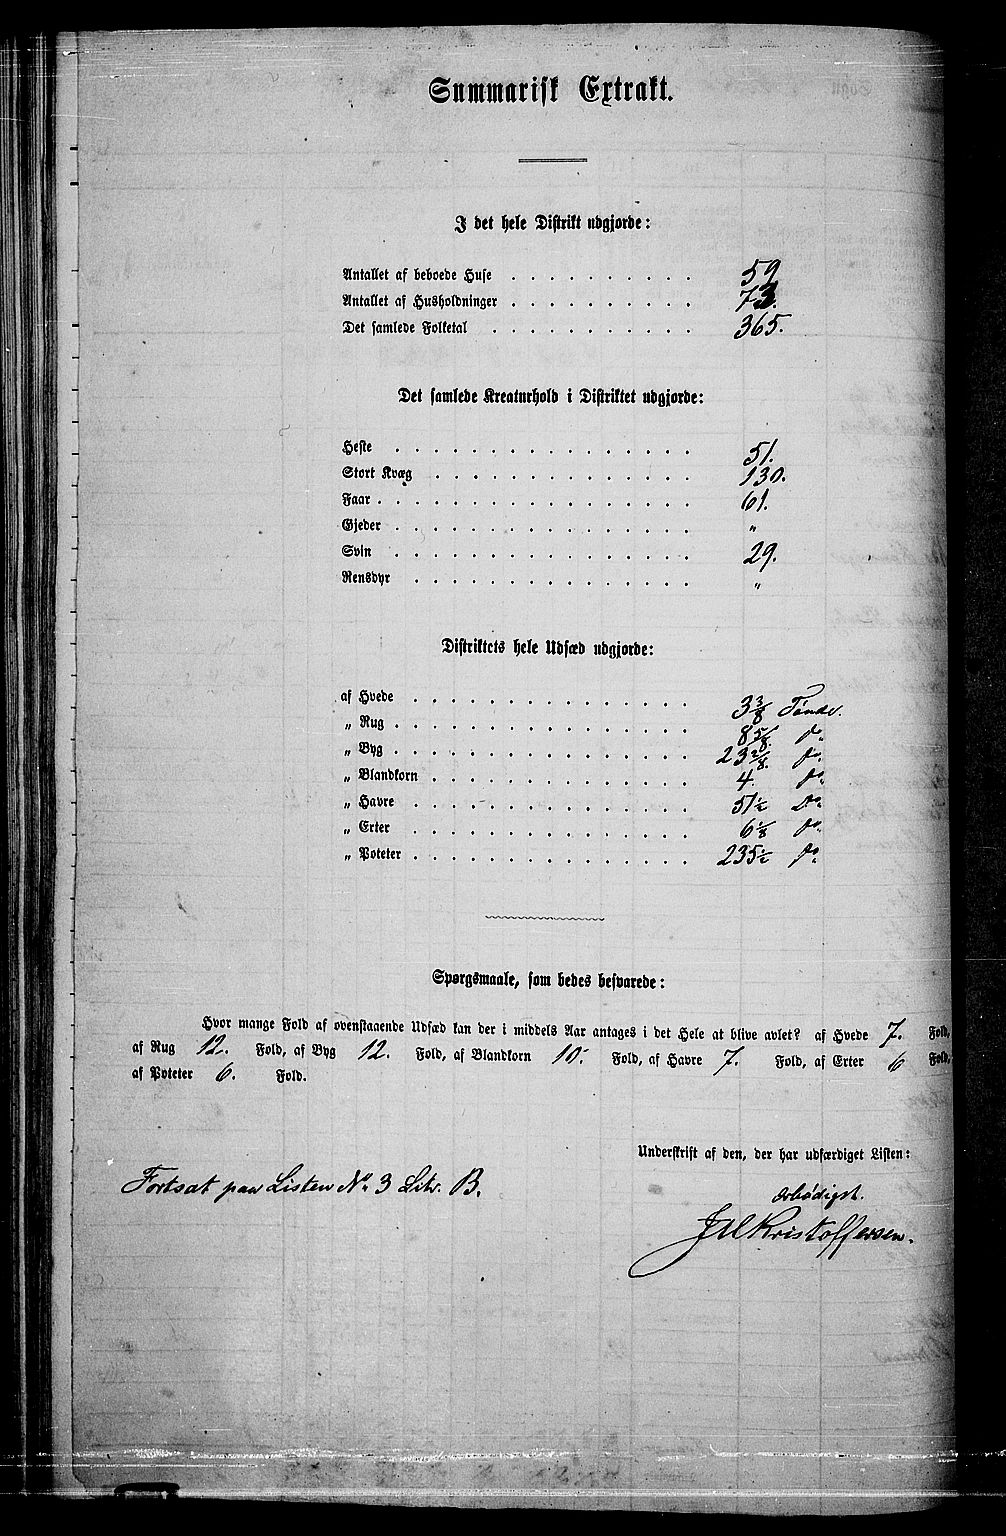 Summarisk Extrakt.
I det hele Distrikt udgjorde:
Antallet af beboede Huse . . . . . . . . . . 59
Antallet af Husholdninger . . . . . . . . . . 73.
Det samlede Folketal . . . . . . . . . . . 365.
Det samlede Kreaturhold i Distriktet udgjorde:
Heste . . . . . . . . . . . . . . . . 51.
Stort Kvæg . . . . . . . . . . . . . . 130.
Faar . . . . . . . . . . . . . . . . . 61.
Gjeder . . . . . . . . . . . . . . . . „
Svin . . . . . . . . . . . . . . . . 29.
Rensdyr . . . . . . . . . . . . . . . „
Distriktets hele Udsæd udgjorde:
af Hvede . . . . . . . . . . . . . . . 3 3/8 Tønde.
„ Rug . . . . . . . . . . . . . . . . 8 5/8. do.
„ Byg . . . . . . . . . . . . . . . . 23 2/8. do.
„ Blandkorn . . . . . . . . . . . . . . 4. do.
„ Havre . . . . . . . . . . . . . . . 51 1/2 Do.
„ Erter . . . . . . . . . . . . . . . 6 1/8 do.
„ Poteter . . . . . . . . . . . . . . . 235 1/2 do.
Spørgsmaale, som bedes besvarede:
Hvor mange Fold af ovenstaaende Udsæd kan der i middels Aar antages i det Hele at blive avlet? af Hvede 7. Fold,
af Rug 12. Fold, af Byg 12. Fold, af Blandkorn 10. Fold, af Havre 7. Fold, af Erter 6 Fold,
af Poteter 6. Fold.
Underskrift af den, der har udfærdiget Listen:
Fortsat paa Listen No. 3 Litr. B.
ærbødigst.
Kristoffersen.